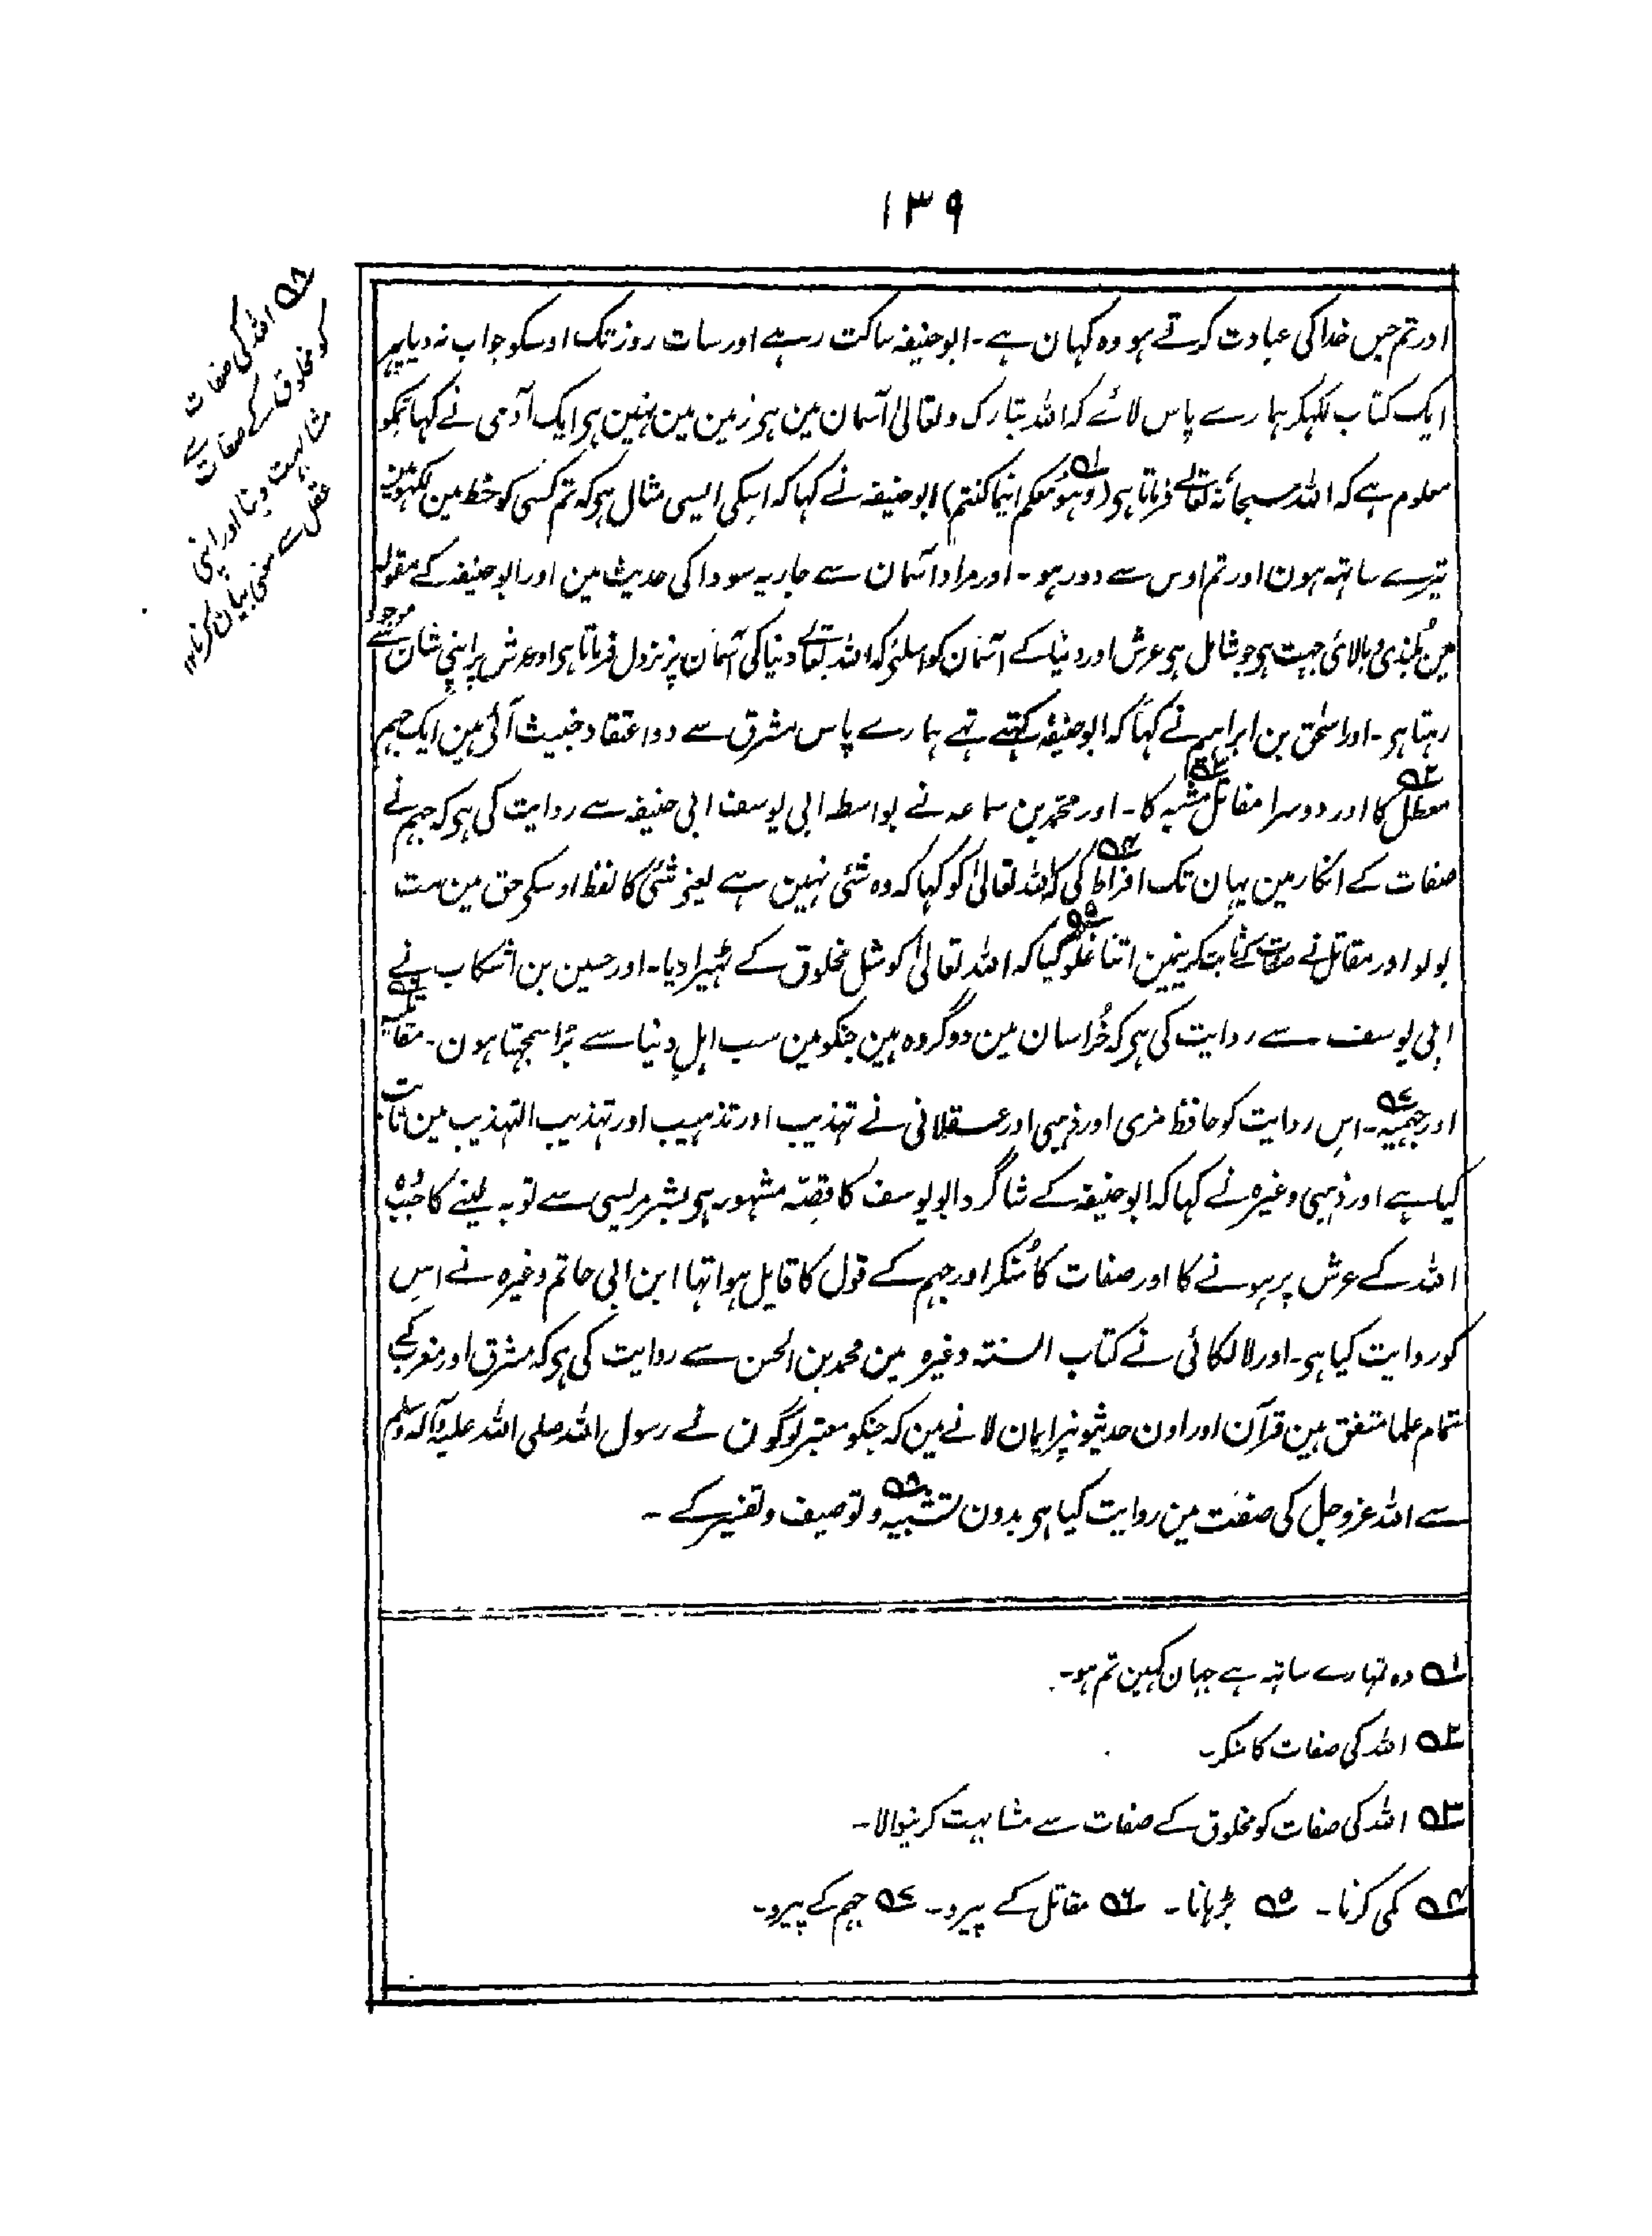 ۱۳۹
اور تم جس خدا کی عبادت کرتے ہو وہ کہان ہے۔ ابو حنیفہ ساکت رہے اور سات روز تک اوسکو جواب نہ دیا پہر
ایک کتاب لکہکر ہمارے پاس لائے کہ اللہ تبارک و تعالیٰ آسمان مین ہی زمین مین نہین ہی ایک آدمی نے کہا تمکو
معلوم ہے کہ اللہ سبحانہ تعالے فرماتا ہی (وہو معکم اینما کنتم)۱ ابو حنیفہ نے کہا کہ اسکی ایسی مثال ہی کہ تم کسی کو خط مین لکہو مین
تیرے ساتہہ ہون اور تم اوس سے دور ہو۔ اور مراد آسمان سے جاریہ سودا کی حدیث مین اور ابو حنیفہ کے مقولہ
مین بُلندی و بالائی جہت ہی جو شامل ہی عرش اور دنیا کے آسمان کو اسلئے کہ اللہ تعالے دنیا کی آسمان پر نزول فرماتا ہی اور عرش پر اپنی شان سے موجود
رہتا ہی۔ اور اسحٰق بن ابراہیم نے کہا کہ ابو حنیفہ کہتے تہے ہمارے پاس مشرق سے دو اعتقاد خبیث آئی ہین ایک جہم
معطل۲ کا اور دوسرا مقاتل مشبہ۳ کا۔ اور محمد بن سماعہ نے بواسطہ ابی یوسف ابی حنیفہ سے روایت کی ہی کہ جہم نے
صفات کے انکار مین یہان تک افراط۴ کی کہ اللہ تعالیٰ کو کہا کہ وہ شئی نہین ہے یعنی شئی کا لفظ اوسکی حق مین مت
بولو اور مقاتل نے صفات کے ثابت کرنیمین اتنا غلو۵ کیا کہ اللہ تعالیٰ کو مثل مخلوق کے ٹہیرا دیا۔ اور حسین بن اشکاب نے
ابی یوسف سے روایت کی ہی کہ خُراسان مین دو گروہ ہین جنکو مین سب اہلِ دنیا سے بُرا سمجہتا ہون۔ مقاتلیہ۶
اور جہمیہ۷۔ اس روایت کو حافظ مزی اور ذہبی اور عسقلانی نے تہذیب اور تذہیب اور تہذیب التہذیب مین ثابت
کیا ہے اور ذہبی وغیرہ نے کہا کہ ابو حنیفہ کے شاگرد ابو یوسف کا قصّہ مشہور ہی بشر مریسی سے توبہ لینے کا جب وہ
اللہ کے عرش پر ہونے کا اور صفات کا مُنکر اور جہم کے قول کا قایل ہوا تہا ابن ابی حاتم وغیرہ نے اسِ
کو روایت کیا ہی۔ اور لالکائی نے کتاب السنتہ وغیرہ مین محمد بن الحسن سے روایت کی ہی کہ مشرق اور مغرب کے
تمام علما متفق ہین قرآن اور اون حدیثونپر ایمان لانے مین کہ جنکو معتبر لوگون نے رسول اللہ صلی اللہ علیہ وآلہ وسلم
سے اللہ عزوجل کی صفت مین روایت کیا ہی بدون تشبیہ۸ و توصیف و تفسیر کے ۔
۱ وہ تمہارے ساتہہ ہے جہان کہین تم ہو۔
۲ اللہ کی صفات کا منکر۔
۳ اللہ کی صفات کو مخلوق کے صفات سے مشابہت کرنیوالا۔
۴ کمی کرنا۔ ۵ بڑہانا۔ ۶ مقاتل کے پیرو۔ ۷ جہم کے پیرو۔
۸ اللہ کی صفات
کو مخلوق کے صفات سے
مشابہت دینا اور اپنی
عقل سے معنی بیان کرنا ۱۲